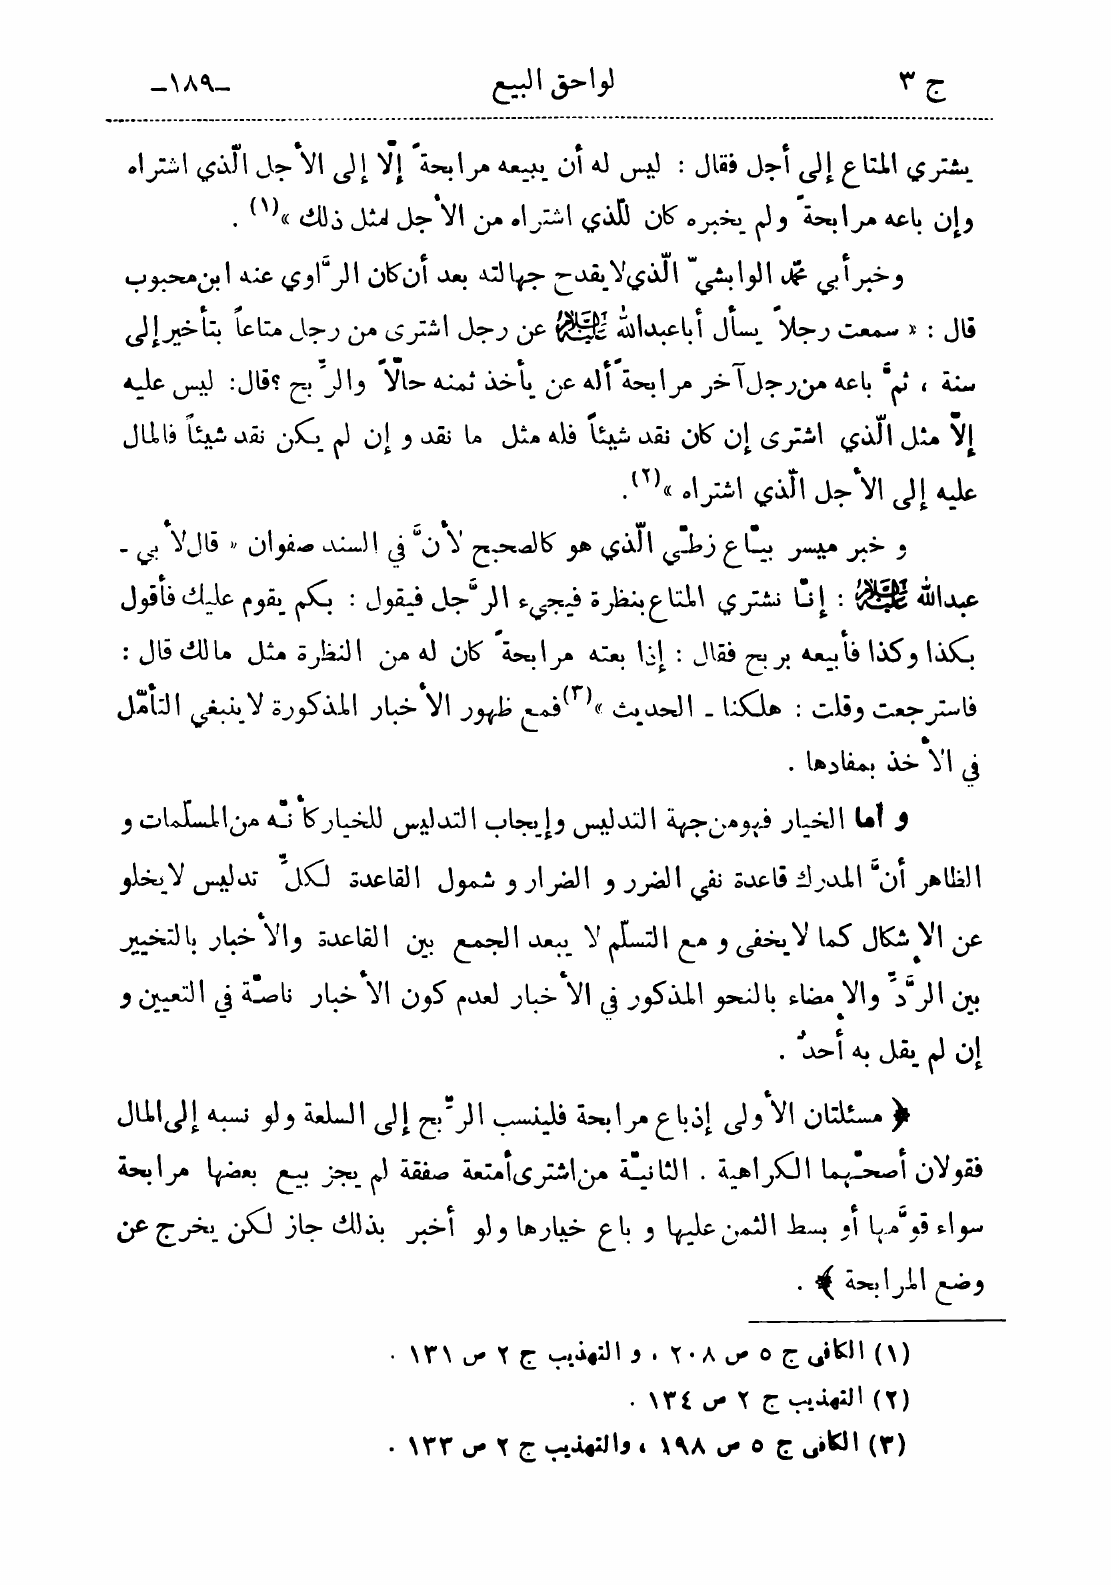 ج ٣ لواحق البيع -١٨٩-
يشتري المتاع إلى أجل فقال : ليس له أن يبيعه مرابحةً إلّا إلى الأجل الّذي اشتراه
وإن باعه مرابحةً ولم يخبره كان للّذي اشتراه من الأجل مثل ذلك »(١) .
وخبر أبي محمّد الوابشيّ الّذي لا يقدح جهالته بعد أن كان الرَّاوي عنه ابن محبوب
قال : « سمعت رجلاً يسأل أبا عبدالله عليه السلام عن رجل اشترى من رجل متاعاً بتأخير إلى
سنة ، ثمَّ باعه من رجل آخر مرابحةً أله عن يأخذ ثمنه حالّاً والرِّبح ؟ قال: ليس عليه
إلّا مثل الّذي اشترى إن كان نقد شيئاً فله مثل ما نقد و إن لم يكن نقد شيئاً فالمال
عليه إلى الأجل الّذي اشتراه »(٢).
و خبر ميسر بيّاع زطّي الّذي هو كالصحيح لأنَّ في السند صفوان « قال لأبي ـ
عبدالله عليه السلام : إنّا نشتري المتاع بنظرة فيجيء الرَّجل فيقول : بكم يقوم عليك فأقول
بكذا وكذا فأبيعه بربح فقال : إذا بعته مرابحةً كان له من النظرة مثل مالك قال :
فاسترجعت وقلت : هلكنا ـ الحديث »(٣) فمع ظهور الأخبار المذكورة لاينبغي التأمّل
في الأخذ بمفادها .
و أما الخيار فهو من جهة التدليس وإيجاب التدليس للخيار كأنّه من المسلّمات و
الظاهر أنَّ المدرك قاعدة نفي الضرر و الضرار و شمول القاعدة لكلِّ تدليس لايخلو
عن الإشكال كما لا يخفى و مع التسلّم لا يبعد الجمع بين القاعدة والأخبار بالتخيير
بين الرَّدِّ والإمضاء بالنحو المذكور في الأخبار لعدم كون الأخبار ناصّة في التعيين و
إن لم يقل به أحدٌ .
﴿ مسئلتان الأولى إذباع مرابحة فلينسب الرِّبح إلى السلعة ولو نسبه إلى المال
فقولان أصحّهما الكراهية . الثانيّة من اشترى أمتعة صفقة لم يجز بيع بعضها مرابحة
سواء قوَّمها أو بسط الثمن عليها و باع خيارها ولو أخبر بذلك جاز لكن يخرج عن
وضع المرابحة ﴾ .
(١) الكافى ج ٥ ص ٢٠٨ ، و التهذيب ج ٢ ص ١٣١ .
(٢) التهذيب ج ٢ ص ١٣٤ .
(٣) الكافى ج ٥ ص ١٩٨ ، والتهذيب ج ٢ ص ١٣٣ .